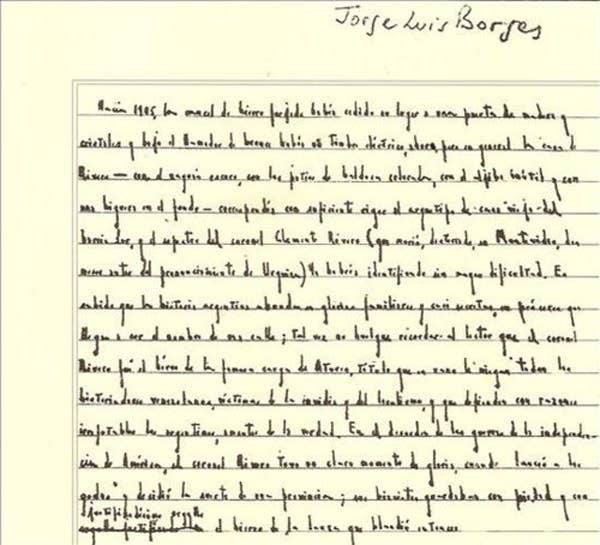 Jorge Luis Borges
Hacia 1905, la cancel de hierro forjado había cedido su lugar a una puerta de madera y
cristales y bajo el llamador de bronce había un timbre eléctrico, ahora, pero en general la casa de
Rivero — con el zaguán escaso, con los patios de baldosa colorada, con el aljibe inútil y con
una higuera en el fondo — correspondía con suficiente rigor al arquetipo de casa vieja del
barrio Sur, y el espectro del coronel Clemente Rivero (que murió, desterrado, en Montevideo, dos
meses antes del pronunciamiento de Urquiza) la habría identificado sin mayor dificultad. Es
sabido que la historia argentina abunda en glorias familiares y casi secretas, en próceres que
llegan a ser el nombre de una calle; tal vez no huelgue recordar al lector que el coronel
Rivero fué el héroe de la primera carga de título que en vano le niegan todos los
historiadores venezolanos, víctimas de la envidia y del localismo, y que defienden con razones
irrefutables los argentinos, amantes de la verdad. En el decurso de las guerras de la independen-
cia de América, el coronel Rivero tuvo un claro momento de gloria, cuando lanceó a los
godos y decidió la suerte de una provincia; sus bisnietos guardaban con piedad y con
justificadísimo orgullo
el hierro de la lanza que blandió entonces